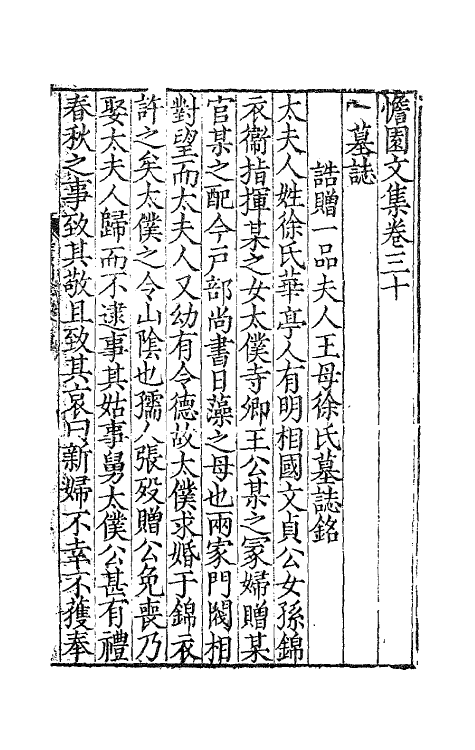 憺園文集卷三十
墓誌
誥贈一品夫人王母徐氏墓誌銘
太夫人姓徐氏華亭人有明相國文貞公女孫錦
衣衞指揮某之女太僕寺卿王公某之冢婦贈某
官某之配今戸部尚書日藻之母也兩家門閥相
對望而太夫人又幼有令德故太僕求婚于錦衣
許之矣太僕之令山陰也孺人張殁贈公免喪乃
娶太夫人歸而不逮事其姑事舅太僕公甚有禮
春秋之事致其敬且致其哀曰新婦不幸不獲奉